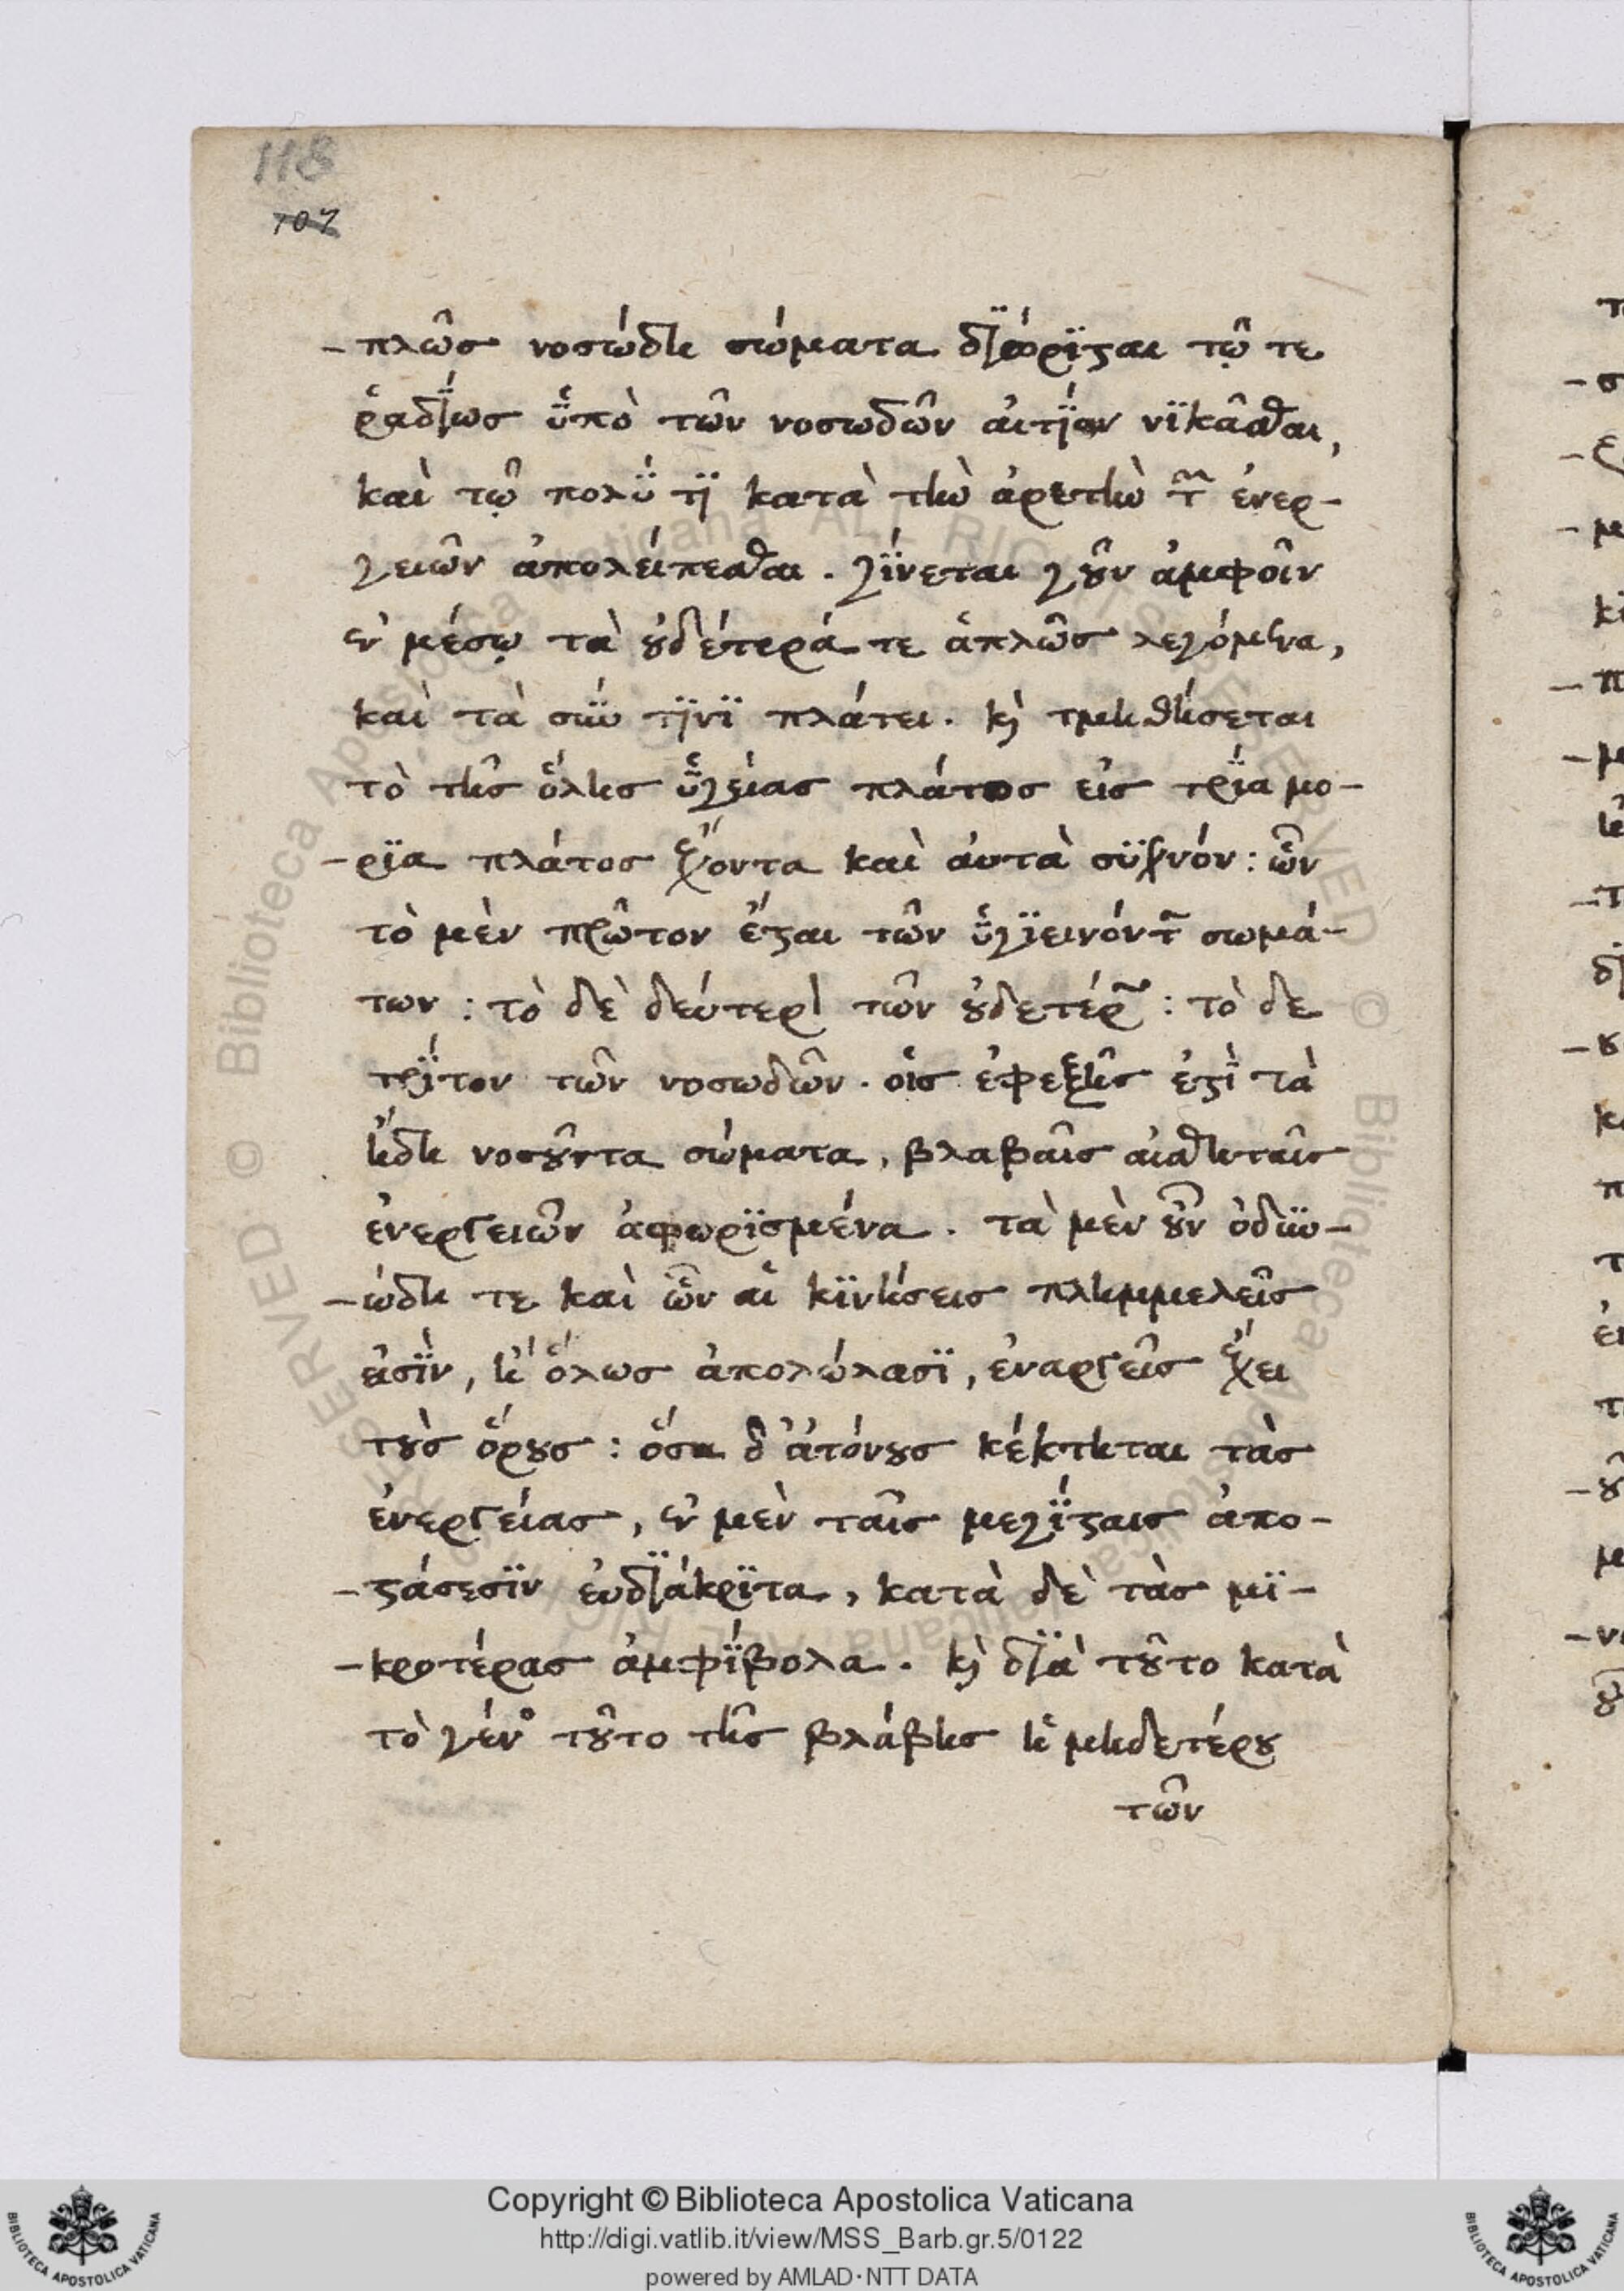 118
107
-πλῶς νοσώδη σώματα διώρϊσται τῷ τε
ῥαδίως ὑπὸ τῶν νοσωδῶν αἰτϊῶν νϊκᾶσθαι,
καὶ τῷ πολύ τϊ κατὰ τὴν ἀρετὴν τῶν ἐνερ-
γειῶν ἀπολείπεσθαι. γΐνεται γοῦν ἀμφοῖν
ἐν μέσῳ τὰ οὐδέτερά τε ἁπλῶς λεγόμενα,
καὶ τὰ σύν τϊνϊ πλάτει. κỳ τμηθήσεται
τὸ τῆς ὅλης ὑγείας πλάτος εἰς τρΐα μο-
-ρϊα πλάτος ἔχοντα καὶ αὐτὰ συχνόν: ὧν
τὸ μὲν πρῶτον ἔσται τῶν ὑγϊεινόντων σωμά-
των: τὸ δὲ δεύτερον τῶν οὐδετέρων: τὸ δε
τρΐτον τῶν νοσωδῶν. οἷς ἐφεξῆς ἐστὶ τὰ
ἤδη νοσοῦντα σώματα, βλαβαῖς αἰσθηταῖς
ἐνεργειῶν ἀφωρϊσμένα. τὰ μὲν οὖν ὀδϋν-
-ώδη τε καὶ ὧν αἱ κϊνήσεις πλημμελεῖς
εἰσὶν, ἢ ὅλως ἀπολώλασϊ, ἐναργεῖς ἔχει
τοὺς ὅρους: ὅσα δ᾽ ἀτόνους κέκτηται τὰς
ἐνεργείας, ἐν μὲν ταῖς μεγΐσταις ἀπο-
-στάσεσϊν εὐδϊάκρϊτα, κατὰ δὲ τὰς μϊ-
-κροτέρας ἀμφΐβολα. κỳ διὰ τοῦτο κατὰ
τὸ γένος τοῦτο τῆς βλάβης ἡ μηδετέρου
τῶν
© Biblioteca Apostolica Vaticana ALL RIGHTS RESERVED © Biblioteca Apostolica Vaticana ALL RIGHTS RESERVED
Copyright © Biblioteca Apostolica Vaticana
http://digi.vatlib.it/view/MSS_Barb.gr.5/0122
powered by AMLAD·NTT DATA
BIBLIOTECA APOSTOLICA VATICANA
BIBLIOTECA APOSTOLICA VATICANA